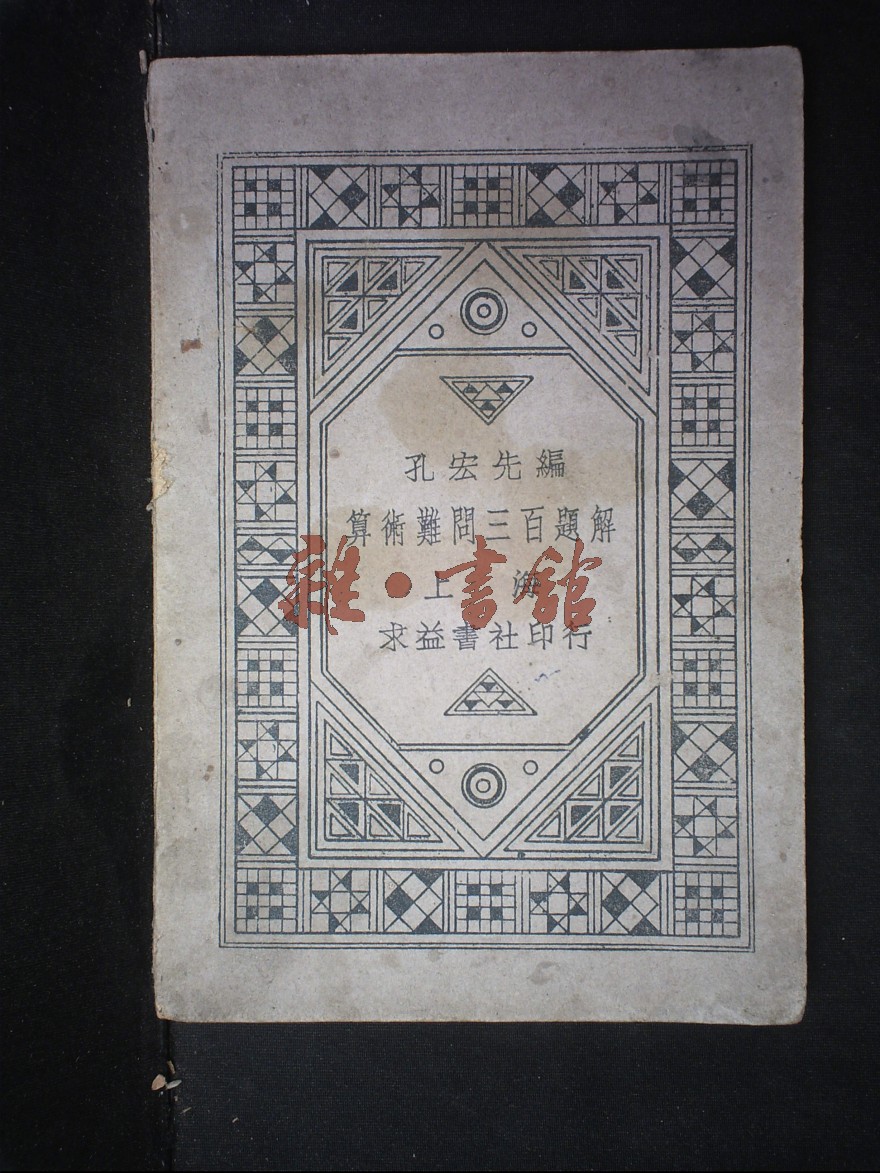 孔宏先編
算術難問三百題解
上海
求益書社印行
雜·書館